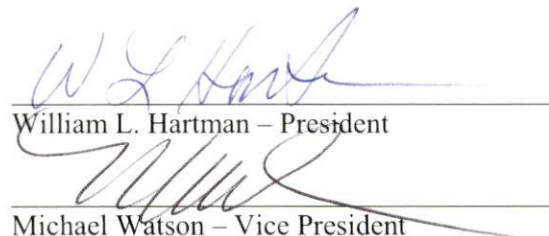 W L Hart
William L. Hartman – President
Michael Watson – Vice President